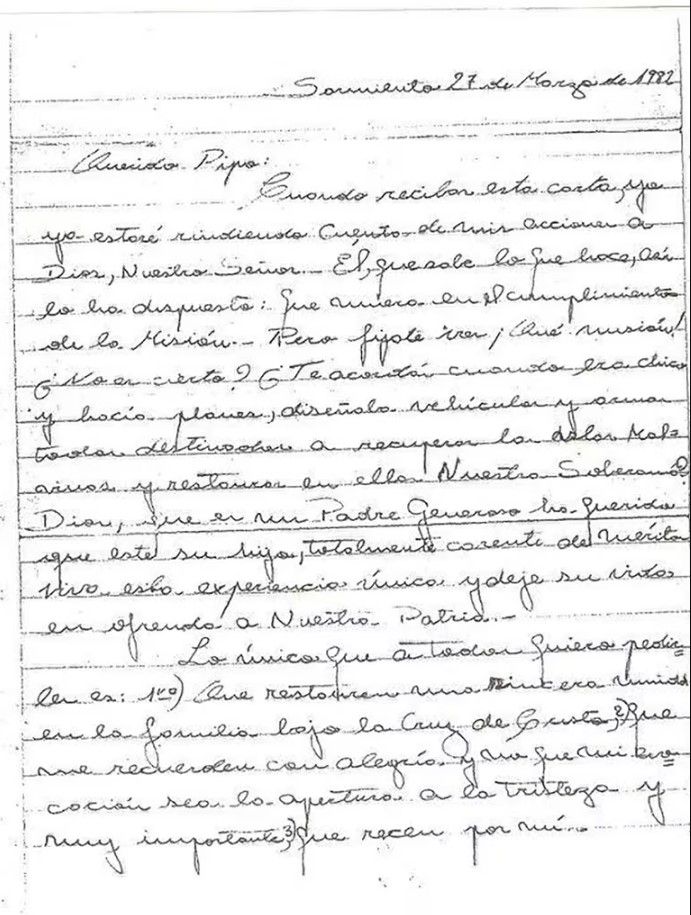 Sarmiento 27 de Marzo de 1982
Querido Pipo:
Cuando recibas esta carta, yo
yo estaré rindiendo Cuenta de mis acciones a
Dios, Nuestro Señor.- Él, que sabe lo que hace, así
lo ha dispuesto: que muera en el cumplimiento
de la Misión.- Pero fijate vos ¡Qué misión!
¿No es cierto? ¿Te acordás cuando era chico
y hacía planes, diseñaba vehículos y armas
todos destinados a recuperar las Islas Mal=
vinas y restaurar en ellas Nuestra Soberanía?
Dios, que es un Padre Generoso ha querido
que este su hijo, totalmente carente de mérito
viva esta experiencia única y deje su vida
en ofrenda a Nuestra Patria.-
Lo único que a todos quiero pedir=
les es: 1ro) Que restauren una sincera unidad
en la familia bajo la Cruz de Cristo, 2) Que
me recuerden con alegría y no que mi evo=
cación sea la apertura a la tristeza y
muy importante, 3) Que recen por mí.-